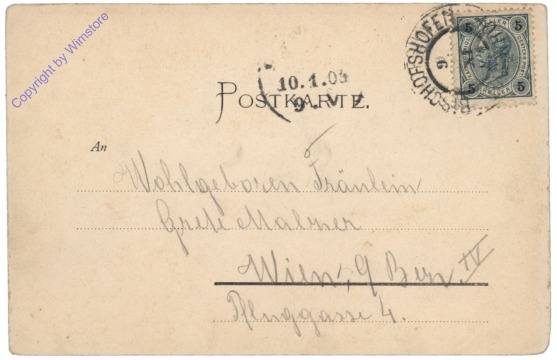 Copyright by Wimstore
BISCHOFSHOFEN
5 5
10.1.03
9. V
POSTKARTE.
An
Wohlgeboren Fräulein
Grete
Wien, 9 Bez. IV
Pfluggasse 4.